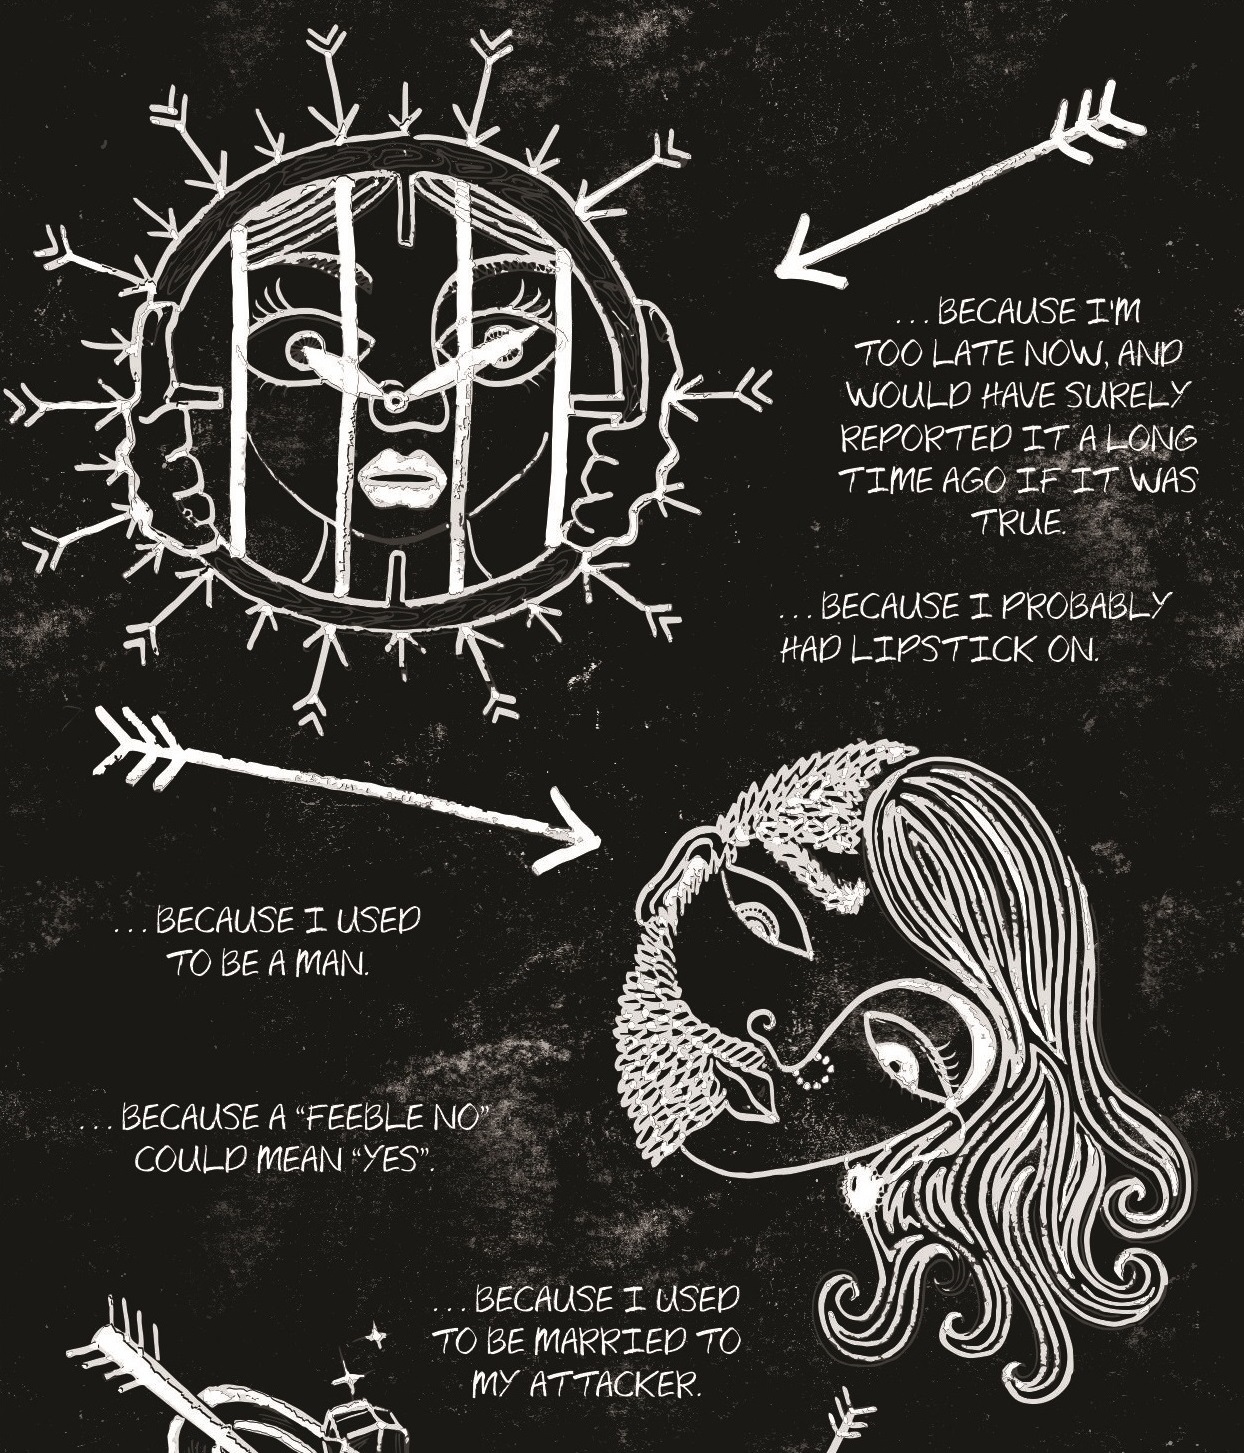 ...BECAUSE I'M
TOO LATE NOW, AND
WOULD HAVE SURELY
REPORTED IT A LONG
TIME AGO IF IT WAS
TRUE.
...BECAUSE I PROBABLY
HAD LIPSTICK ON.
...BECAUSE I USED
TO BE A MAN.
...BECAUSE A “FEEBLE NO”
COULD MEAN “YES”.
...BECAUSE I USED
TO BE MARRIED TO
MY ATTACKER.